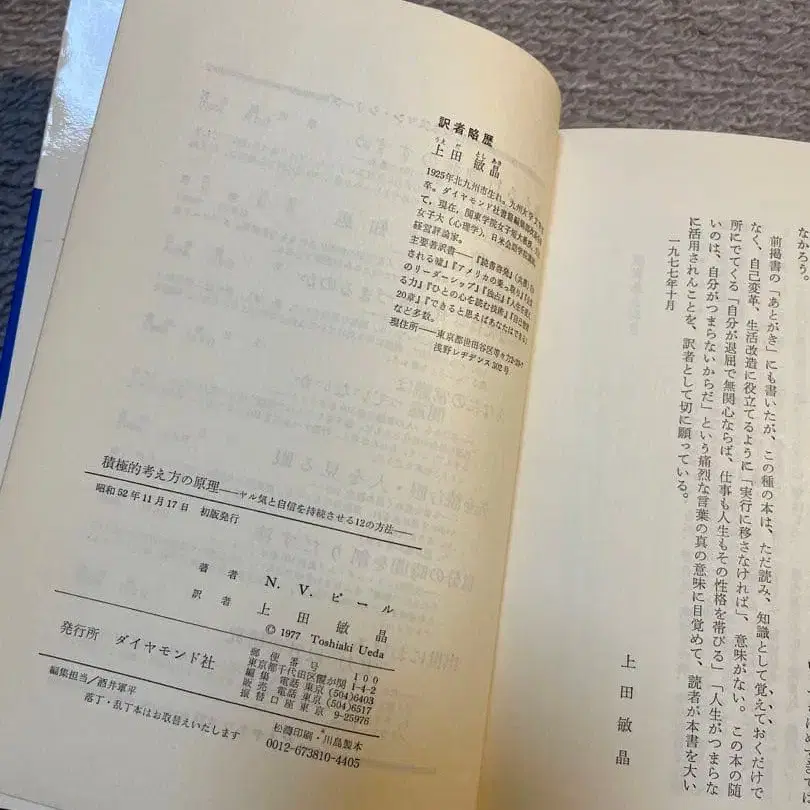 なかろう。
前掲書の「あとがき」にも書いたが、この種の本は、ただ読み、知識として覚えておくだけで
なく、自己変革、生活改造に役立てるように「実行に移さなければ」、意味がない。この本の随
所にでてくる「自分が退屈で無関心ならば、仕事も人生もその性格を帯びる」「人生がつまらな
いのは、自分がつまらないからだ」という痛烈な言葉の真の意味に目覚めて、読者が本書を大い
に活用されんことを、訳者として切に願っている。
一九七七年十月
上田敏晶
訳者略歴
上田敏晶
うえだ としあき
1925年北九州市生れ。九州大学
卒。ダイヤモンド社
て、現在、関東学院女子短大
女子大(心理学)、日米会話学院
経営評論家。
主要著訳書――『読書啓発』
される嘘』『アメリカの乗っ取り』
のリーダーシップ』『独占』『人生を
る力』『ひとの心を読む技術』『自己
20章』『できると思えばあなたはできる』
など多数。
現住所――東京都世田谷区等々力
浅野レヂデンス302号
積極的考え方の原理――ヤル気と自信を持続させる12の方法――
昭和52年11月17日 初版発行
著者 N. V. ピール
訳者 上田敏晶
© 1977 Toshiaki Ueda
発行所 ダイヤモンド社
郵便番号 100
東京都千代田区霞が関1-4-2
編集電話東京(504)6403
販売電話東京(504)6517
振替口座東京 9-25976
編集担当/酒井軍平
落丁・乱丁本はお取替えいたします
松濤印刷・川島製本
0012-673810-4405